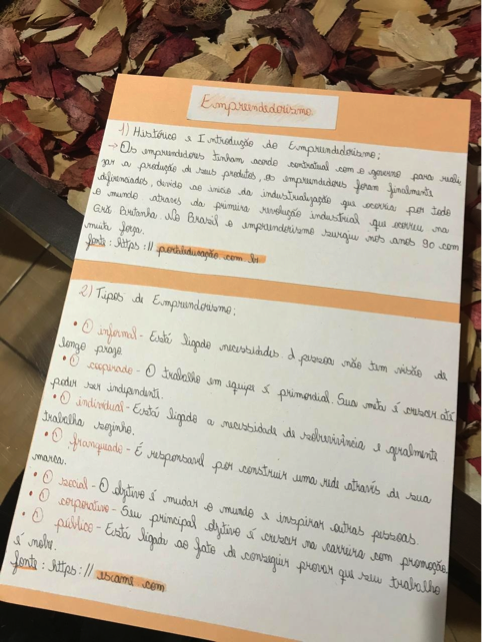 Empreendedorismo
1) Histórico e Introdução do Empreendedorismo;
→ Os empreendedores tinham acordo contratual com o governo para reali
zar a produção de seus produtos, os empreendedores foram finalmente
diferenciados, devido ao inicio da industrialização que ocorria por todo
o mundo através da primeira revolução industrial que ocorreu na
Grã Bretanha. No Brasil o empreendorismo surgiu nos anos 90 com
muita força.
fonte: https:// portaleducação.com.br
2) Tipos de Empreendorismo:
• O informal - Está ligado necessidades á pessoa não tem visão de
longo prazo.
• O cooperado - O trabalho em equipe é primordial. Sua meta é crescer até
poder ser independente.
• O individual - Está ligado a necessidade de sobrevivência e geralmente
trabalha sozinho.
• O franqueado - É responsavel por construir uma rede através de sua
marca.
• O social - O objtivo é mudar o mundo e inspirar outras pessoas.
• O corporativo - Seu principal objtivo é crescer na carreira com promoção.
• O público - Está ligado ao fato de conseguir provar que seu trabalho
é nobre.
fonte: https:// escame.com